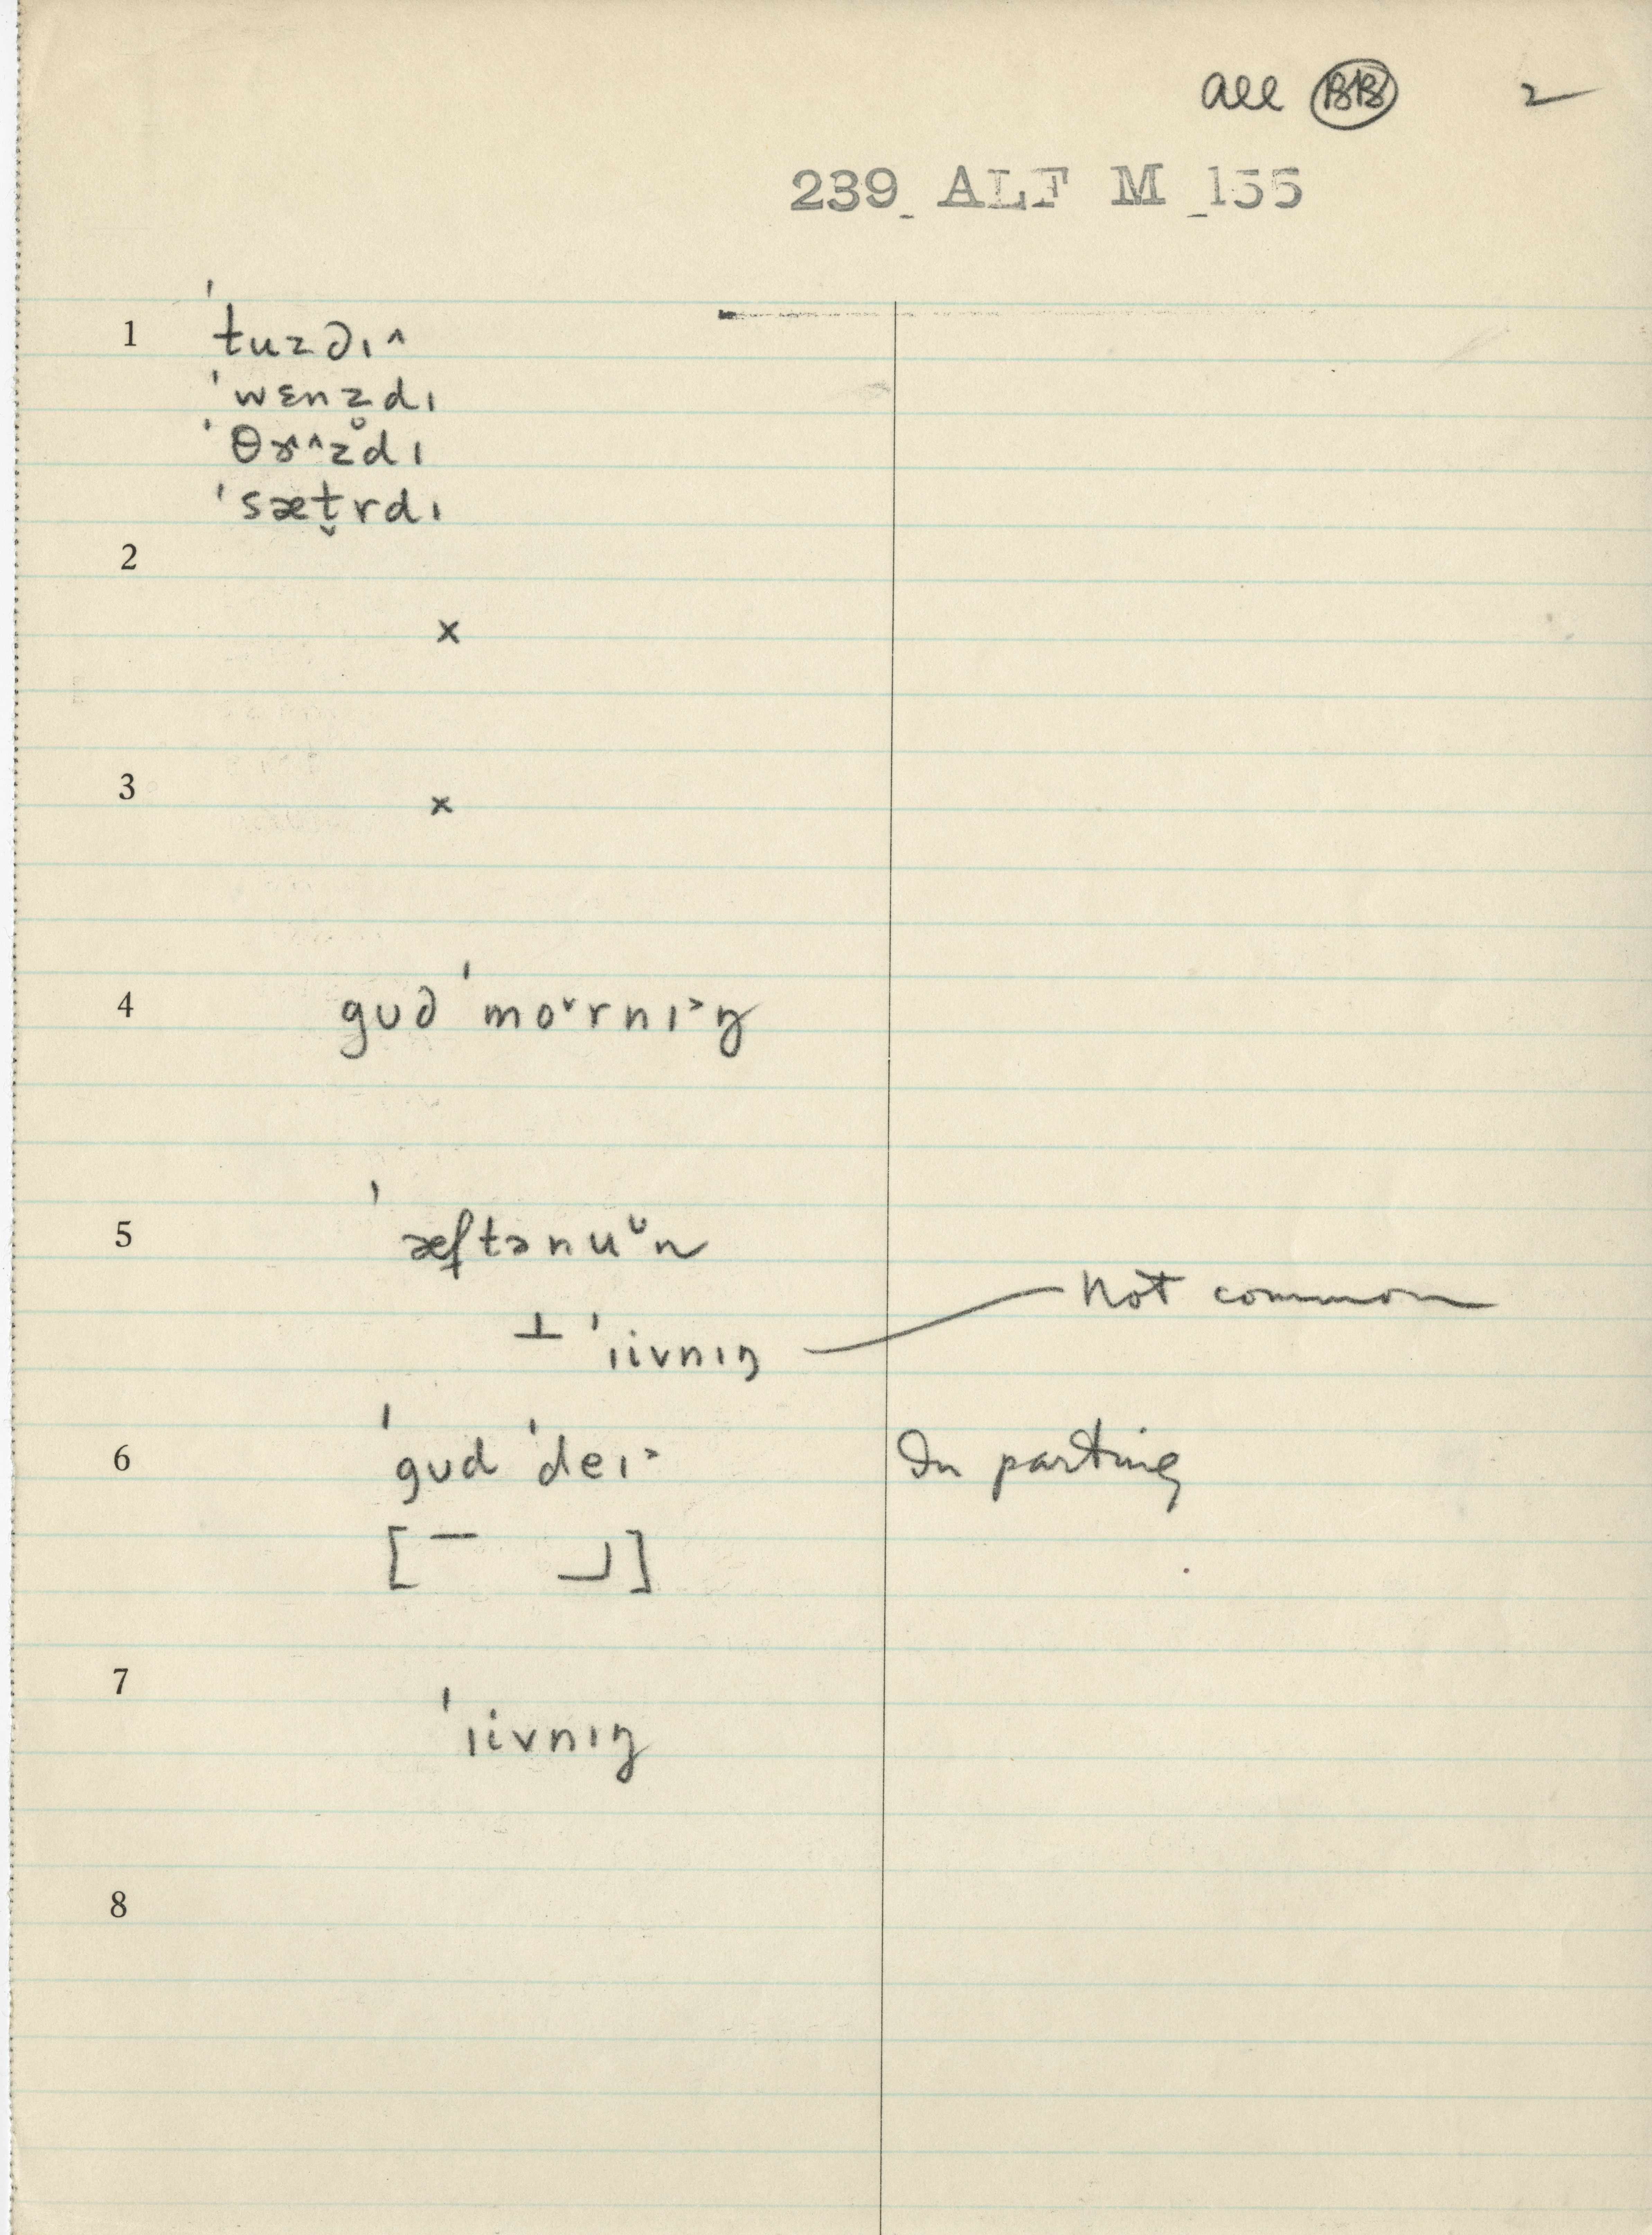 all BB 2
239 ALF M 155
1 ˈtuzdɪ^
ˈwɛnz̥dɪ
ˈθɤ^^zdɪ
ˈsæt̬rdɪ
2
x
3
x
4 gʊd ˈmo˅rnɪ˃ŋ
5 ˈæftənuᵕn
⊥ ˈɪivnɪŋ Not common
6 ˈgʊd ˈdeɪ˃ In parting
[¯ ⅃]
7 ˈɪivnɪŋ
8